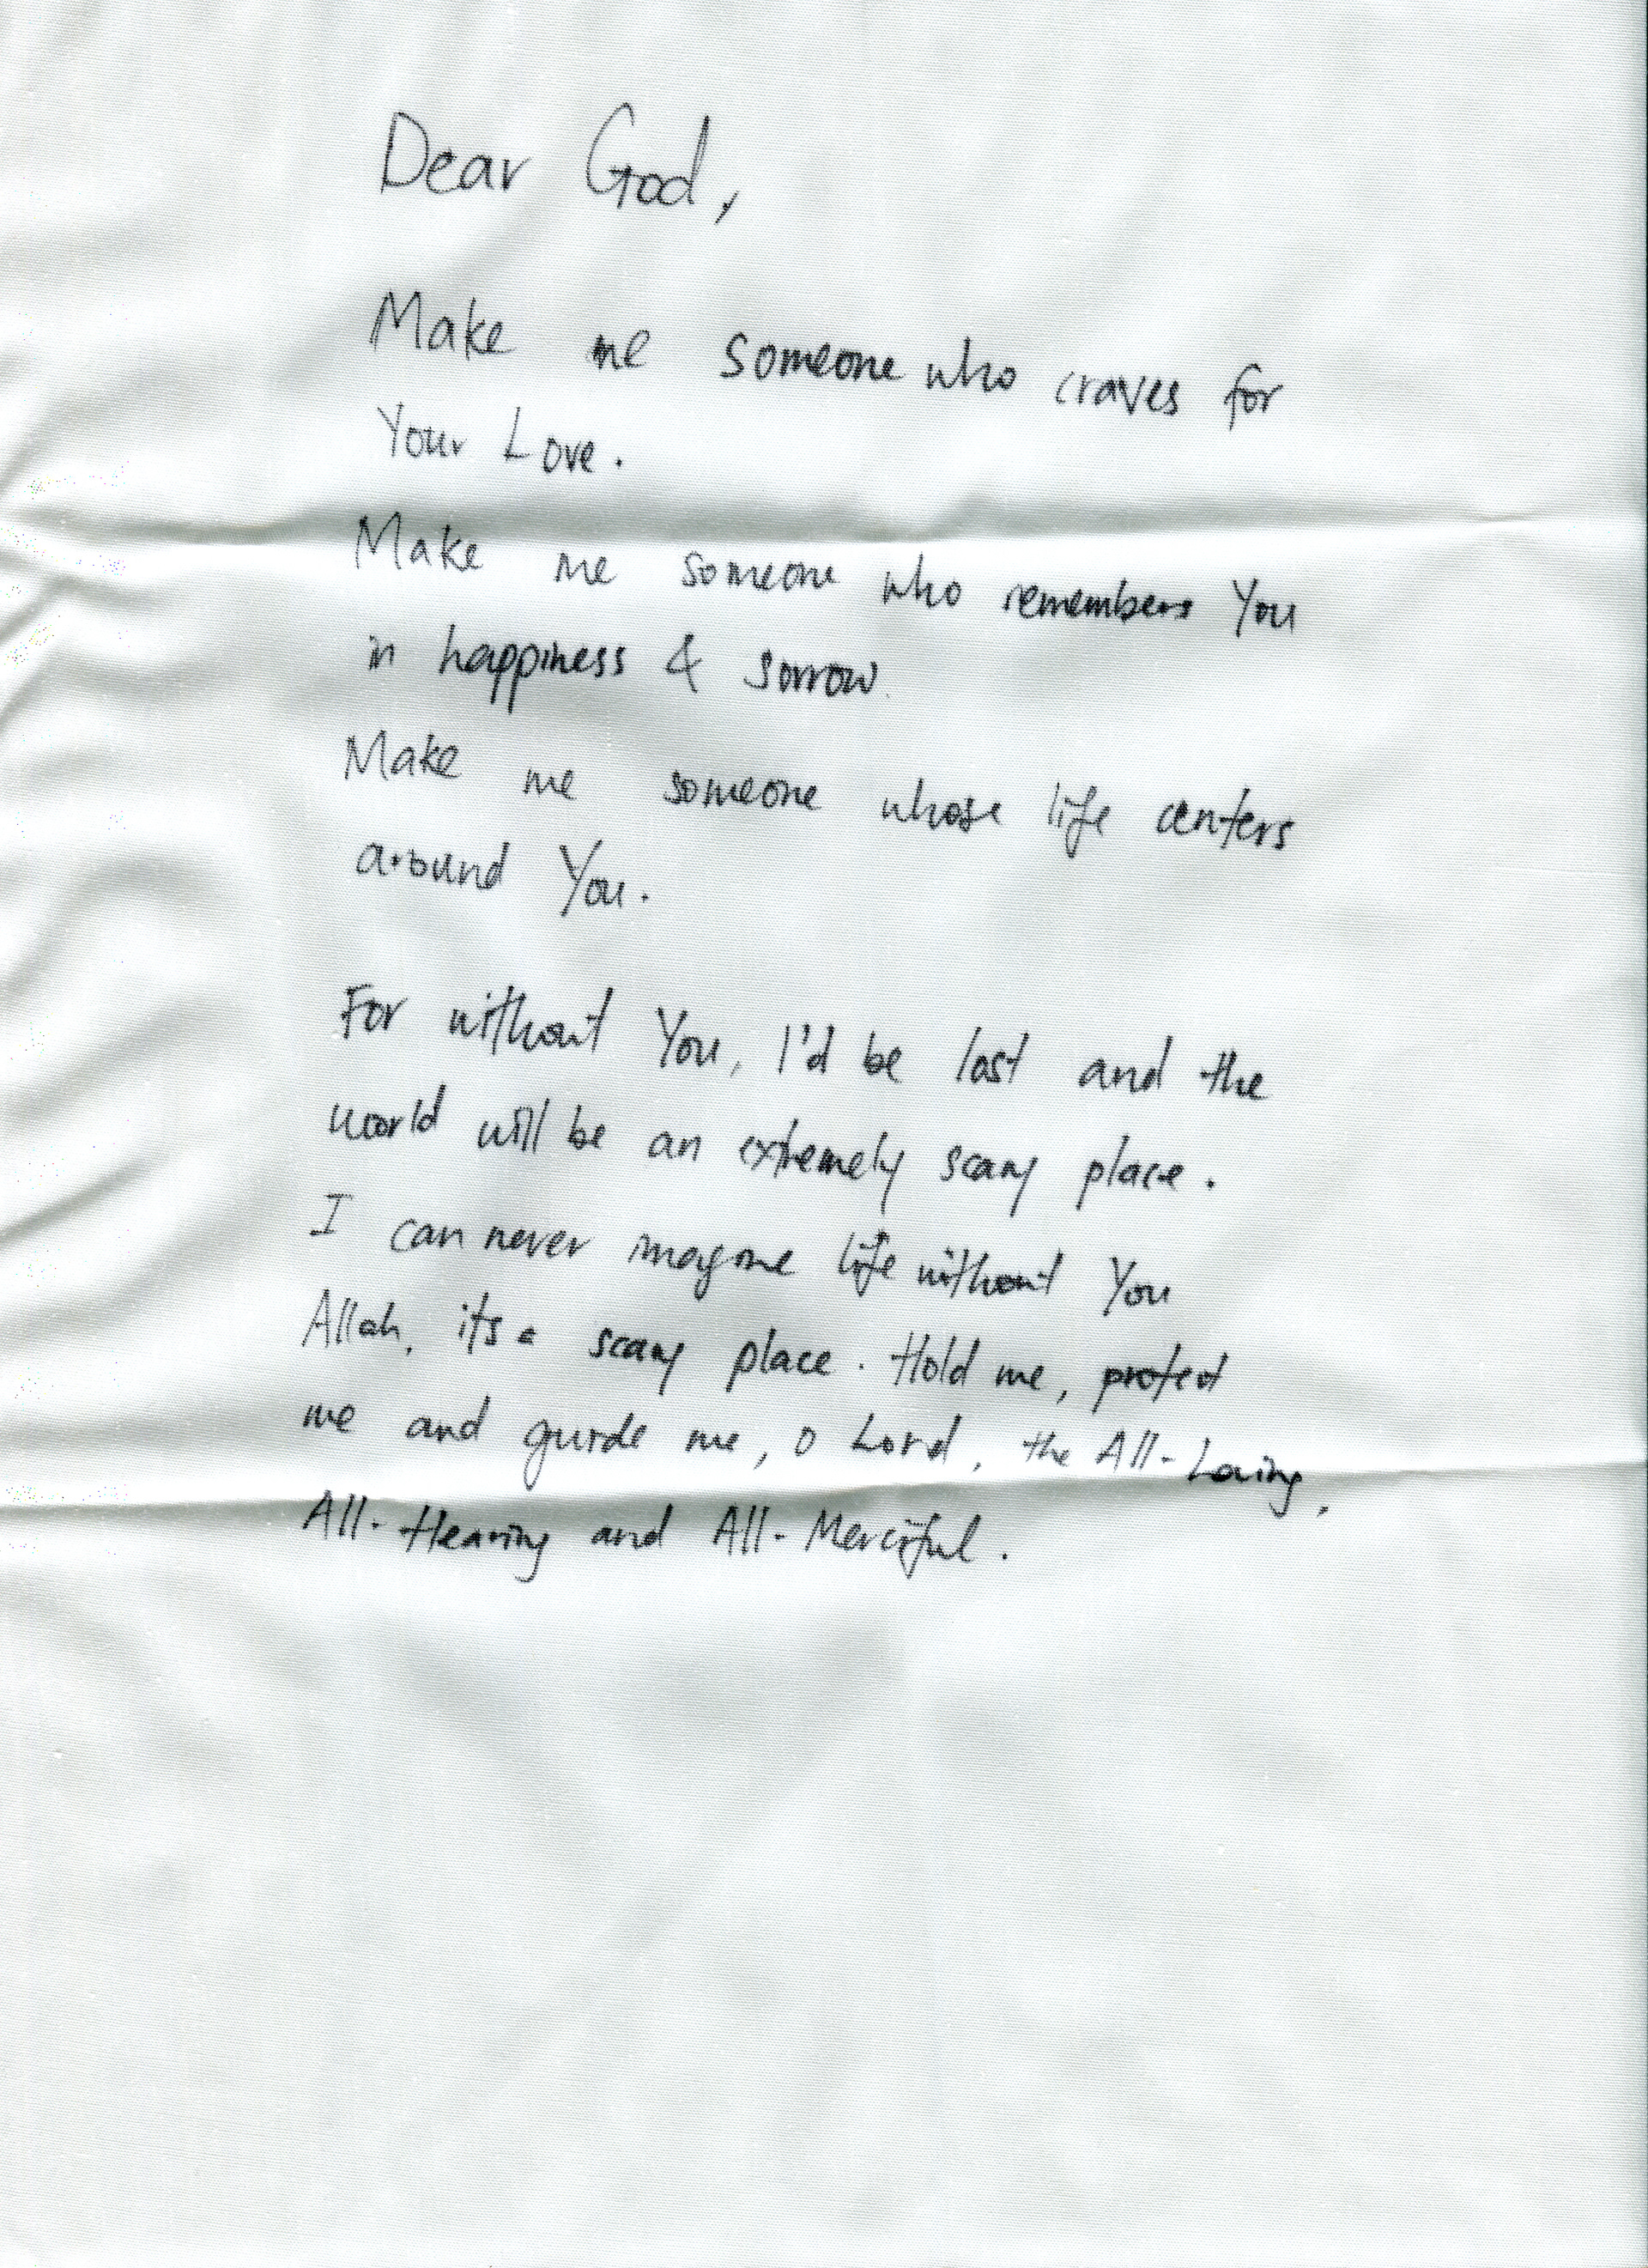 Dear God,
Make me someone who craves for
Your Love.
Make me someone who remembers You
in happiness & sorrow.
Make me someone whose life centers
around You.
For without You, I'd be lost and the
world will be an extremely scary place.
I can never imagine life without You
Allah, its a scary place. Hold me, protect
me and guide me, o Lord, the All-Loving,
All-Hearing and All-Merciful.